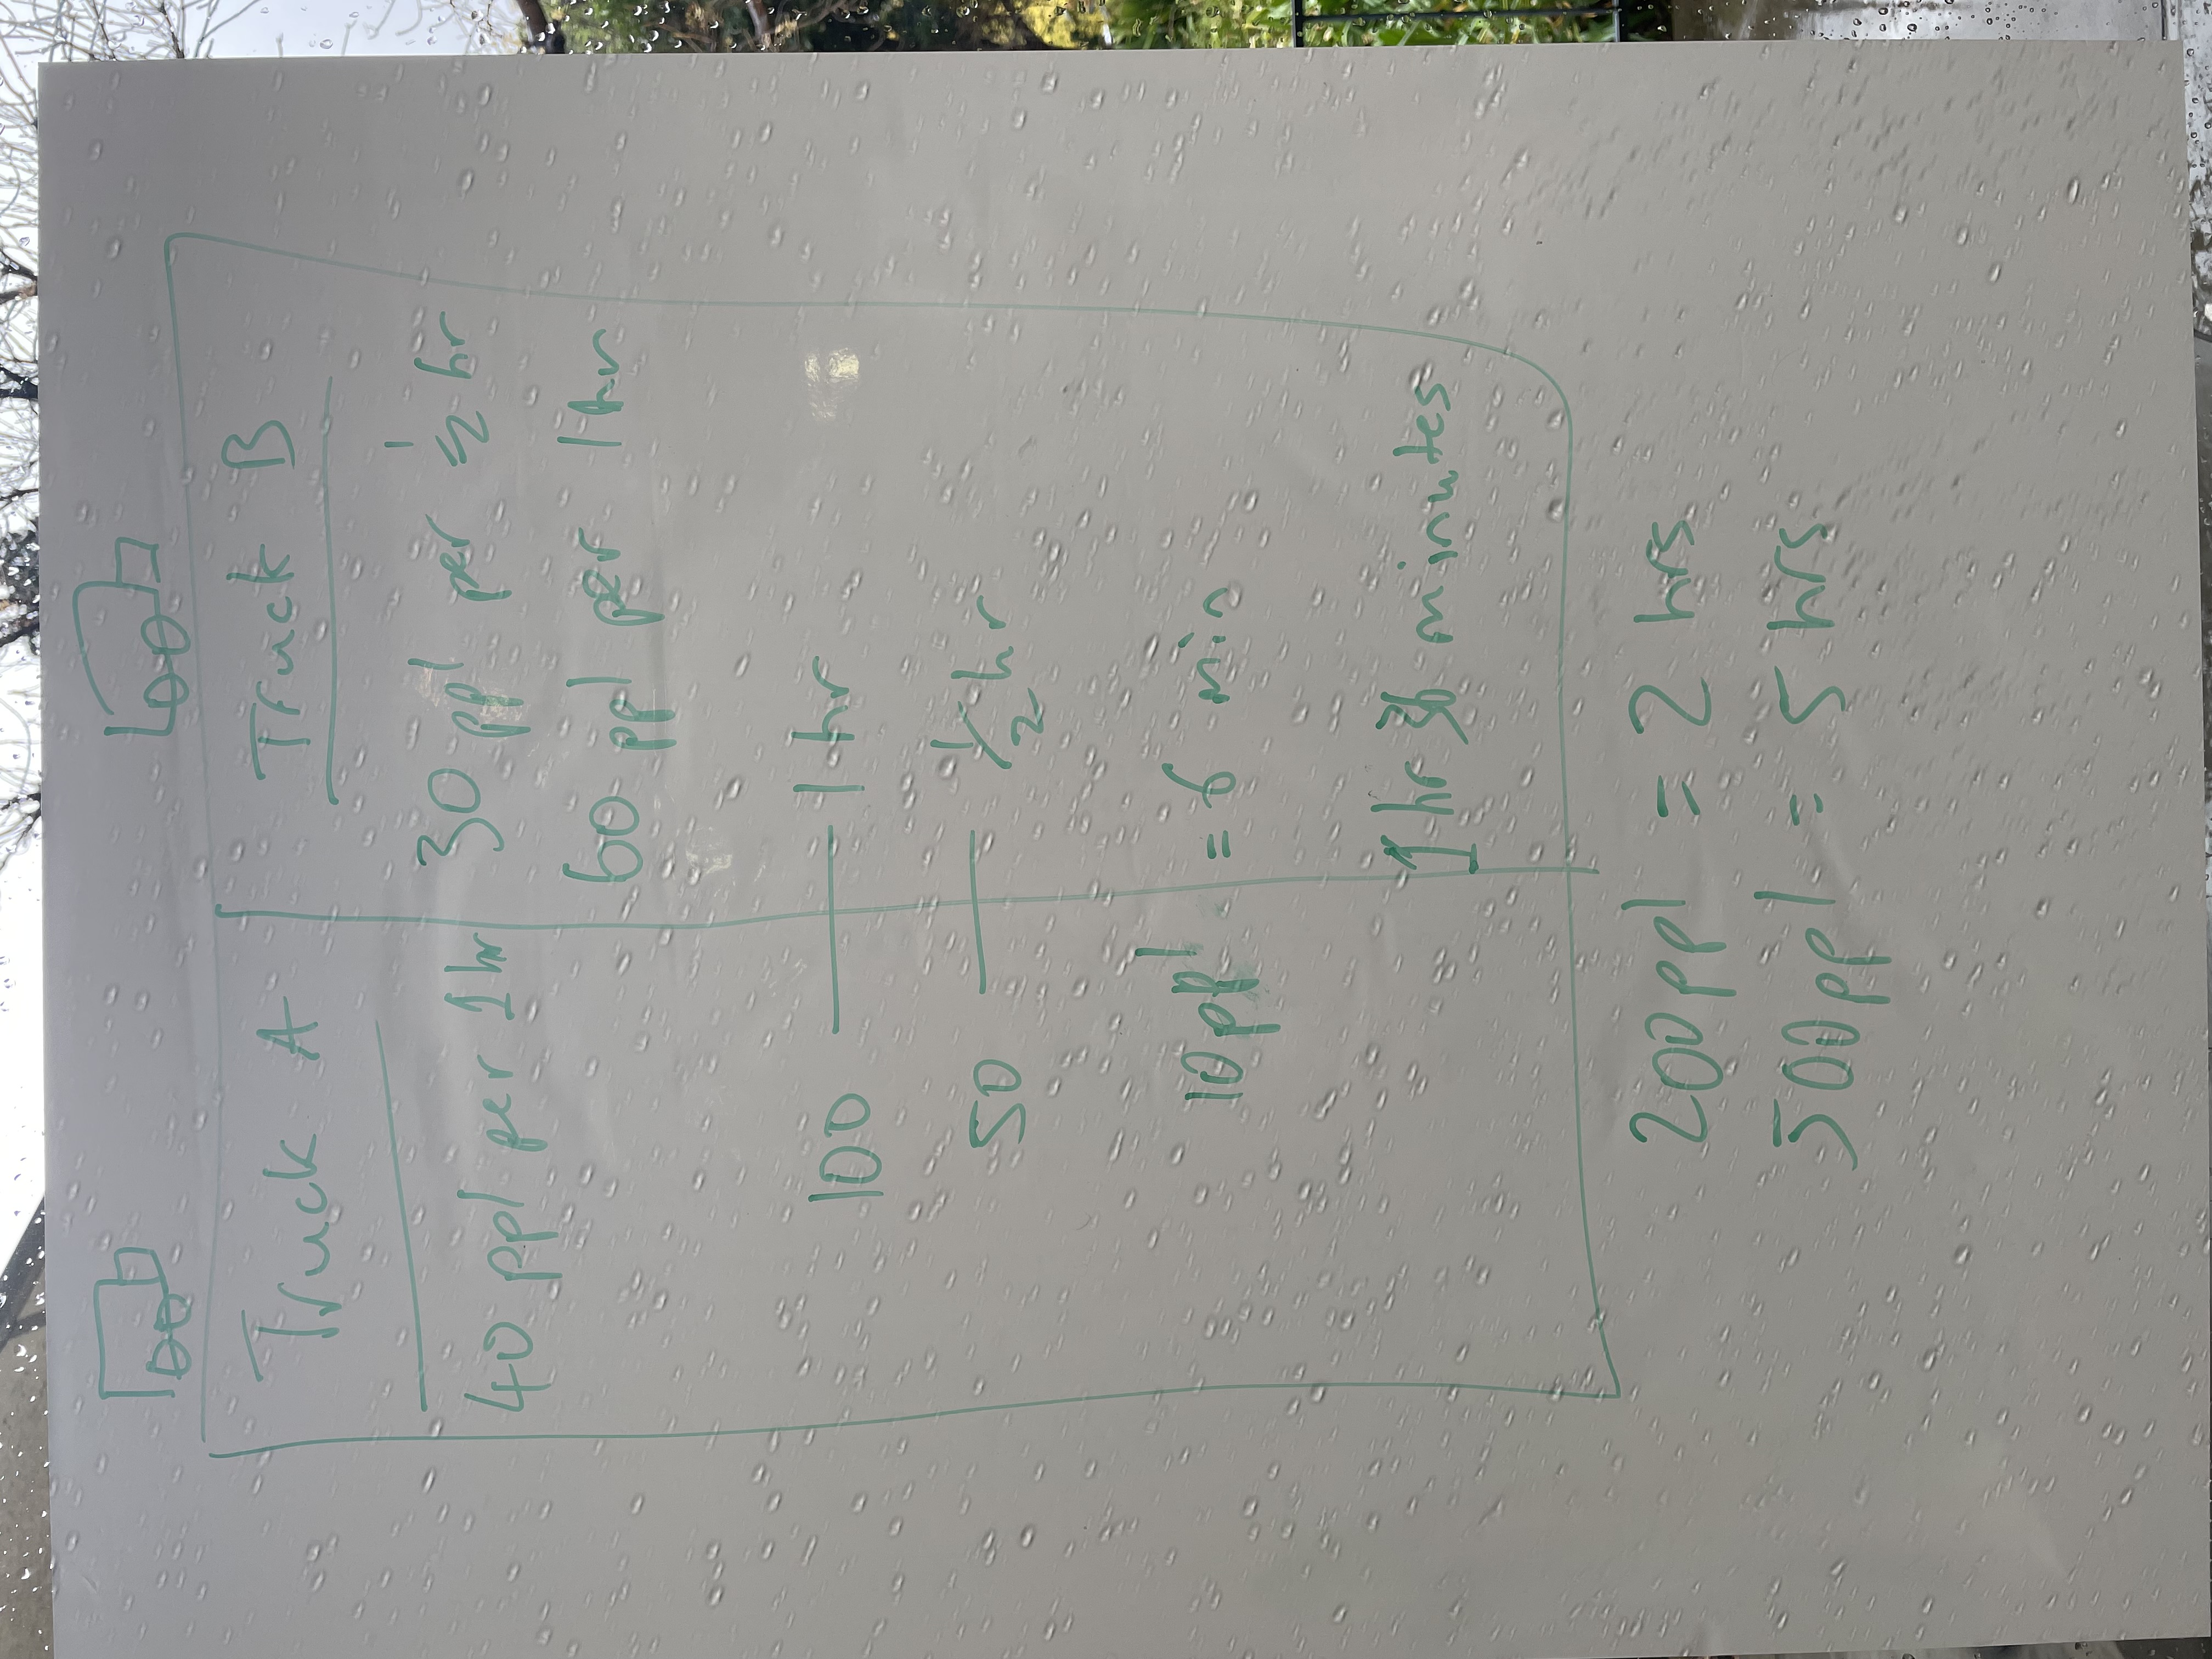 Truck A
Truck B
40 ppl per 1 hr
30 ppl per ½ hr
60 ppl per 1 hr
100 — 1 hr
50 — ½ hr
10 ppl = 6 min
1 hr minutes
200 ppl = 2 hrs
500 ppl = 5 hrs